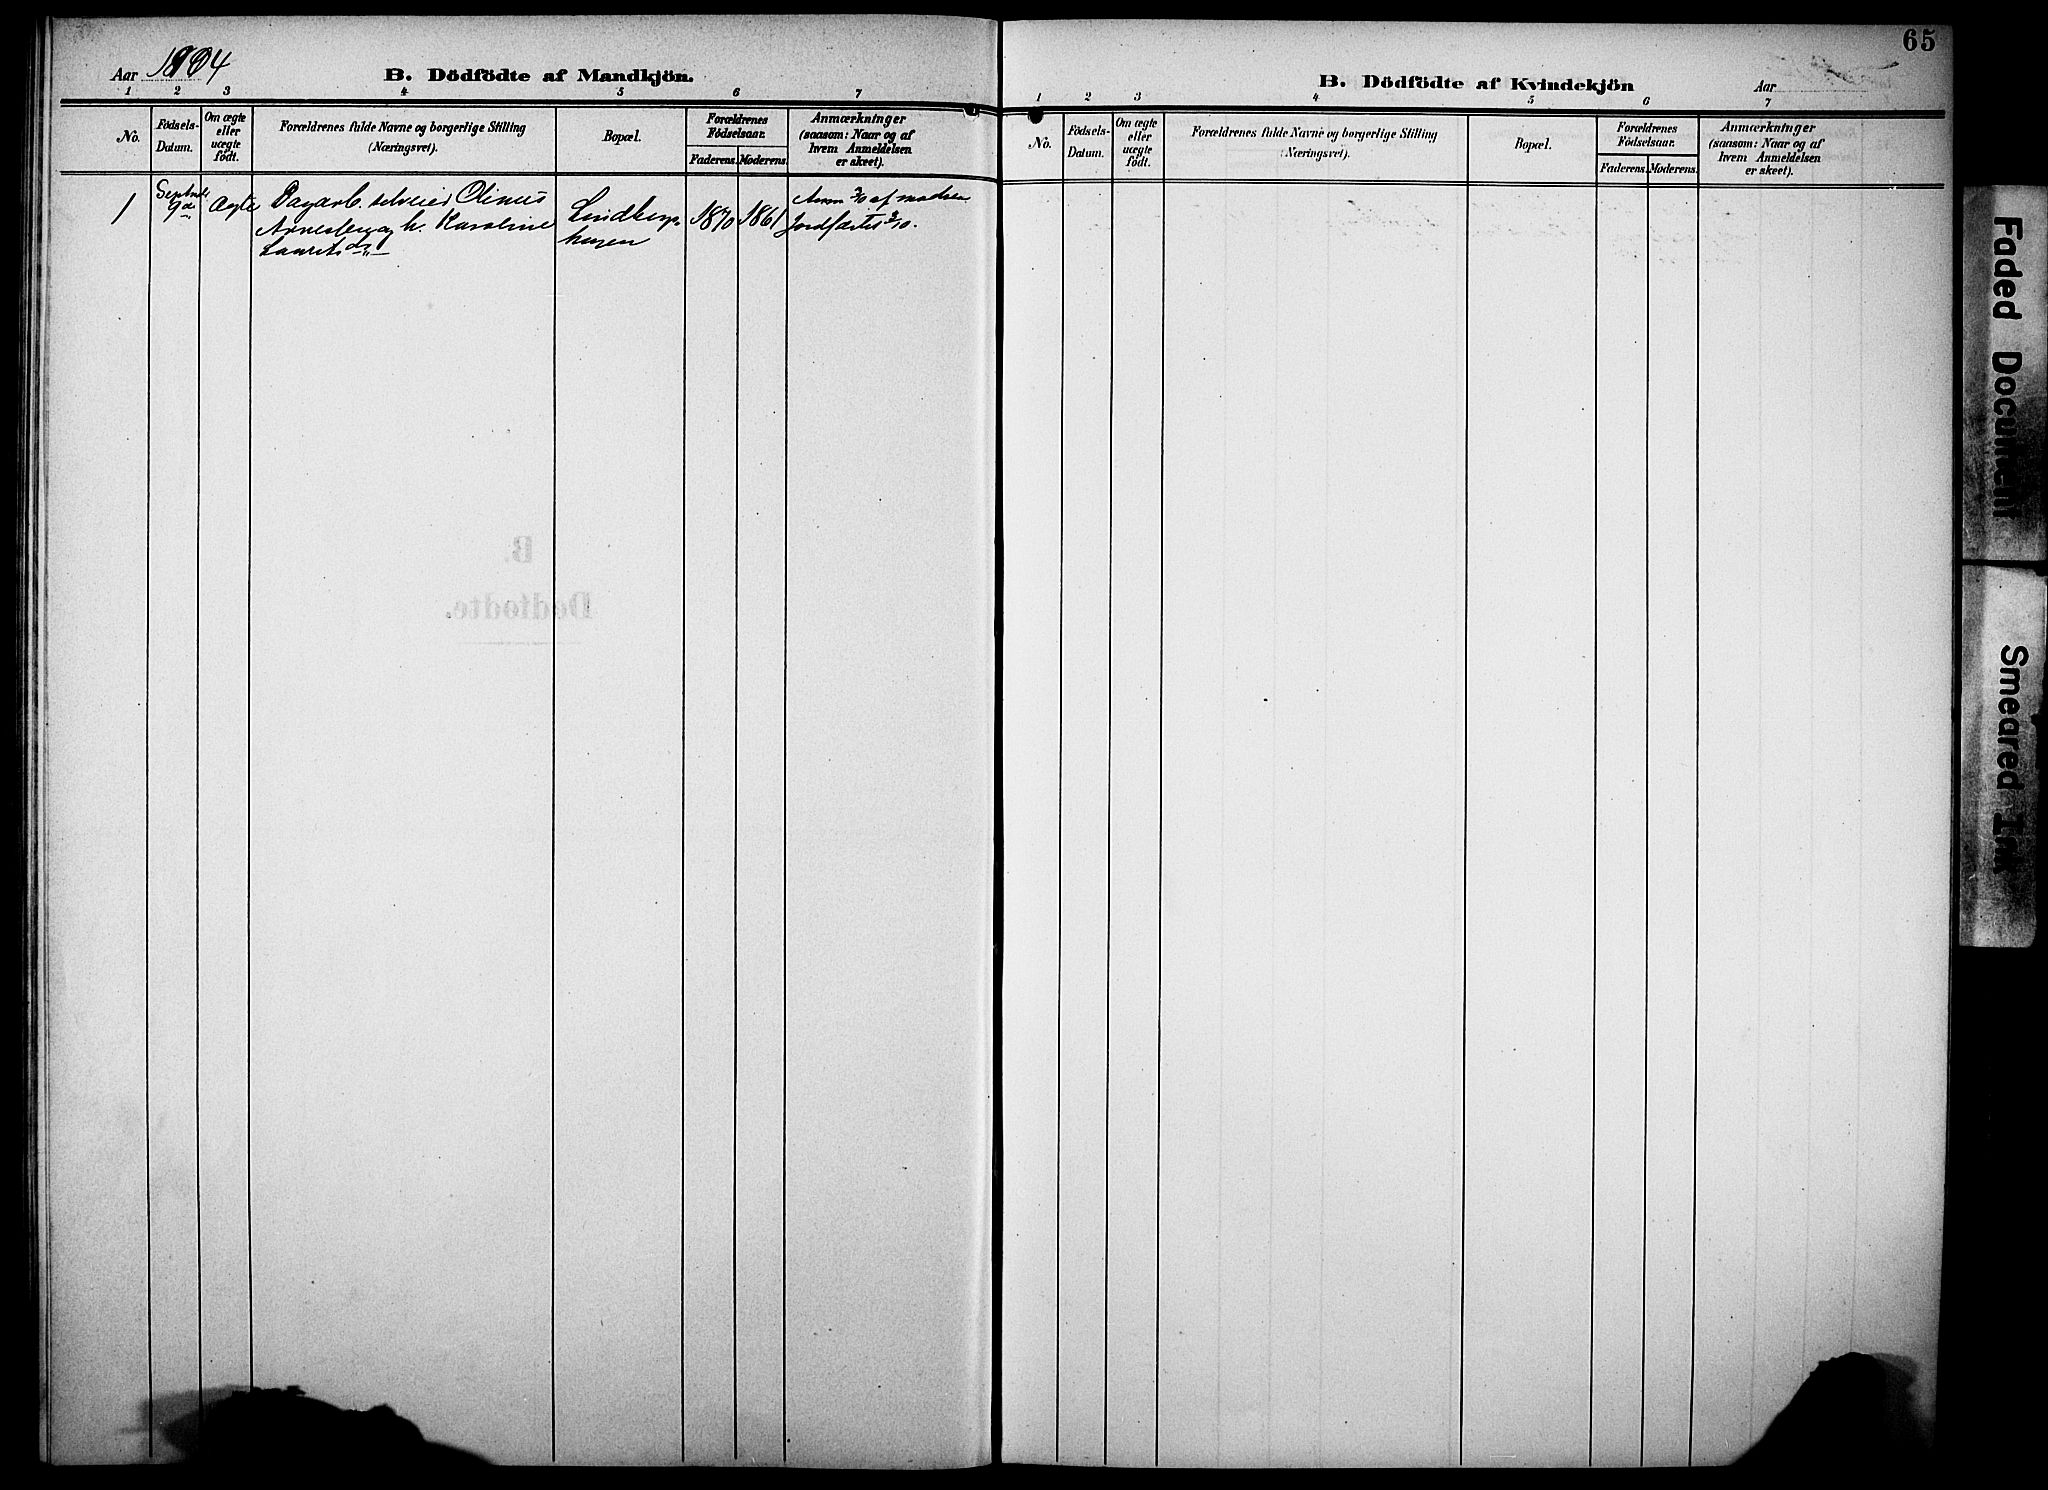 Aar 1904
B. Dödfödte af Mandkjön.
1 2 3 4 5 6 7
No.
Födsels-
Datum.
Om ægte
eller
uægte
födt.
Forældrenes fulde Navne og borgerlige Stilling
(Næringsvei).
Bopæl.
Forældrenes
Födselsaar.
Faderens. Moderens.
Anmærkninger
(saasom: Naar og af
hvem Anmeldelsen
er skeet).
1
9de
Ægte
Dagarb. selveier Olinus
Arnesen og h. Karoline
Lauritsdr
Lindberg-
haugen
1870 1861
Anm 2/10 af
Jordfæstet 2/10.
B.
Dødfødte.
65
B. Dödfödte af Kvindekjön
Aar
1 2 3 4 5 6 7
No.
Födsels-
Datum.
Om ægte
eller
uægte
födt.
Forældrenes fulde Navne og borgerlige Stilling
(Næringsvei).
Bopæl.
Forældrenes
Födselsaar.
Faderens. Moderens.
Anmærkninger
(saasom: Naar og af
hvem Anmeldelsen
er skeet).
Faded Document
Smeared Ink